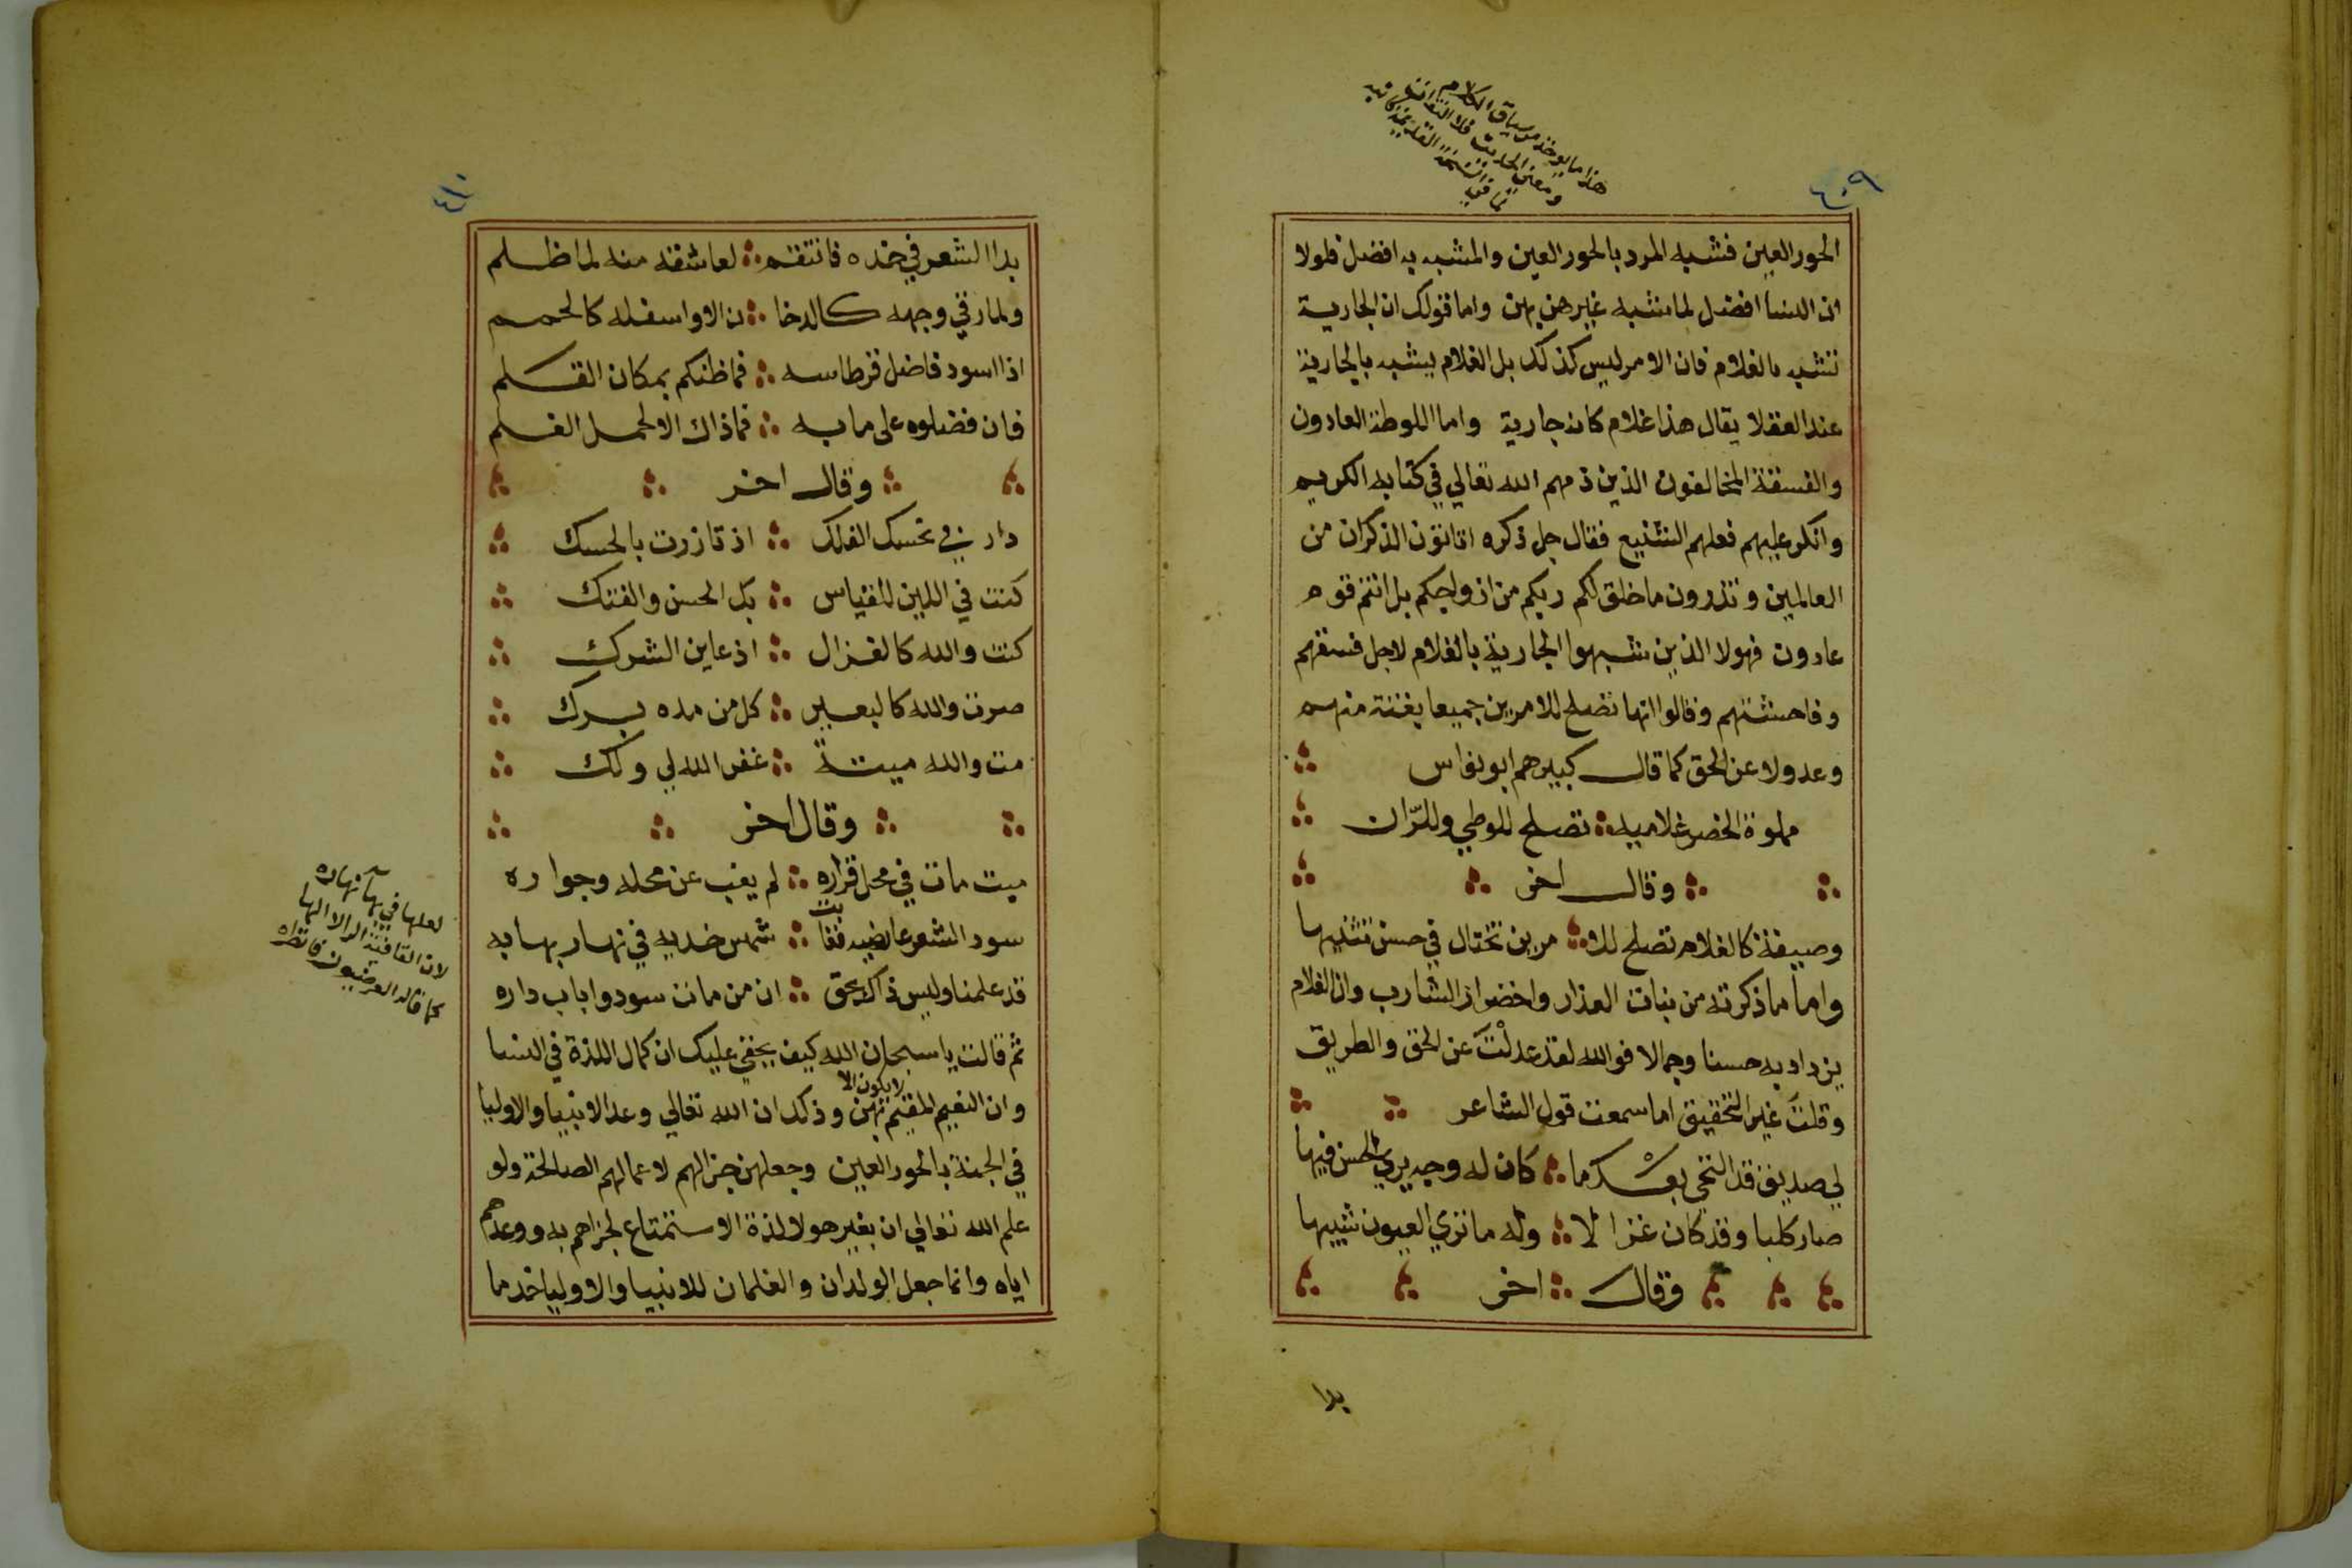 ٤٠٩
هذا ما يوخذ من سياق الكلام
ومعنى الحديث فلا التفات
الحور العين فشبه المرد بالحور العين والمشبه به افضل فلولا
ان النسا افضل لما شبه غيرهن بهن واما قولك ان الجارية
تشبه بالغلام فان الامر ليس كذلك بل الغلام يشبه بالجارية
عند العقلا يقال هذا غلام كانه جارية واما اللوطة العادون
والفسقة المخالفون الذين ذمهم الله تعالي في كتابه الكريم
وانكر عليهم فعلهم الشنيع فقال جل ذكره اتاتون الذكران من
العالمين وتذرون ما خلق لكم ربكم من ازواجكم بل انتم قوم
عادون فهولا الذين شبهوا الجارية بالغلام لاجل فسقهم
وفاحشتهم وقالوا انها تصلح للامرين جميعا بغتة منهم
وعدولا عن الحق كما قال كبيرهم ابو نواس
مملوة الخصر غلاميه تصلح للوطي وللزان
وقال اخر
وصيفة كالغلام تصلح للا مرين تختال في حسن تثنيها
واما ما ذكرته من بنات العذار واخضرار الشارب وان الغلام
يزداد به حسنا وجمالا فوالله لقد عدلْتَ عن الحق والطريق
وقلتَ غير التحقيق اما سمعت قول الشاعر
لي صديق قد التخي بعْـد ما كان له وجه يري الحسن فيها
صار كلبا وقد كان غزا لا وله ما تري العيون شبيها
وقال اخر
بدا
٤١٠
بدا الشعر في خده فانتقم لعاشقه منه لما ظلم
ولما رقي وجهه كالدخا ن الا واسفله كالحمم
اذا اسود فاضل قرطاسه فما ظنكم بمكان القلم
فان فضلوه علي ما به فما ذاك الا لحمل الغلم
وقال اخر
دار في نحسك الفلك اذ تازرت بالحسك
كنت في اللين للقياس بك الحسن والفتك
كنت والله كالغزال اذ عاين الشرك
صرت والله كالبعير كل من مده برك
مت والله ميتة غفر الله لي ولك
وقال اخر
ميت مات في محل قراره لم يغب عن محله وجواره
سود الشعر عارضيه فغابت شمس خديه في نهار بهابه
قد علمنا وليس ذاك بحق ان من مات سودوا باب داره
ثم قالت يا سبحان الله كيف يخفي عليك ان كمال اللذة في النسا
وان النعيم المقيم لا يكون الا بهن وذلك ان الله تعالي وعد الانبيا والاوليا
في الجنة بالحور العين وجعلهن جزا لهم لاعمالهم الصالحة ولو
علم الله تعالي ان بغير هولا لذة الاستمتاع لجزاهم به ووعدهم
اياه وانما جعل الولدان والغلمان للانبيا والاوليا خدما
لعلها في بهآ نهاره
لان القافية الرا لا الها
كما قاله العروضيون فانظره